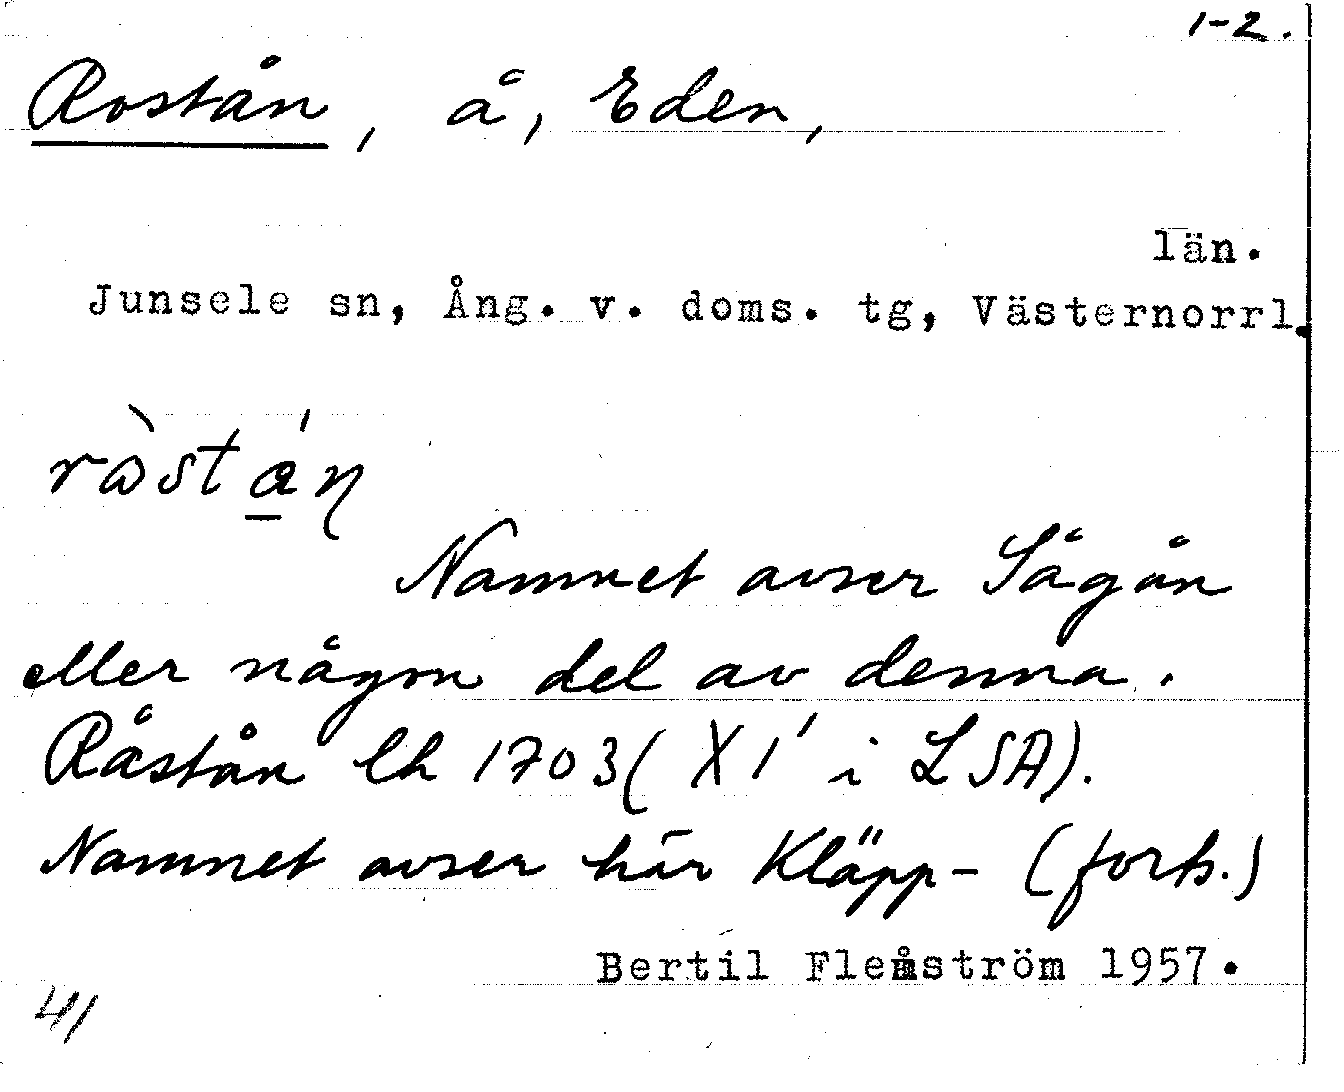 1-2.
Rostån, å, Eden,
län.
Junsele sn, Ång. v. doms. tg, Västernorrl.
Namnet avser Sågån
eller någon del av denna.
Råstån lh 1703 (X1' i LSA).
Namnet avser här Kläpp- (forts.)
Bertil Flemström 1957.
41